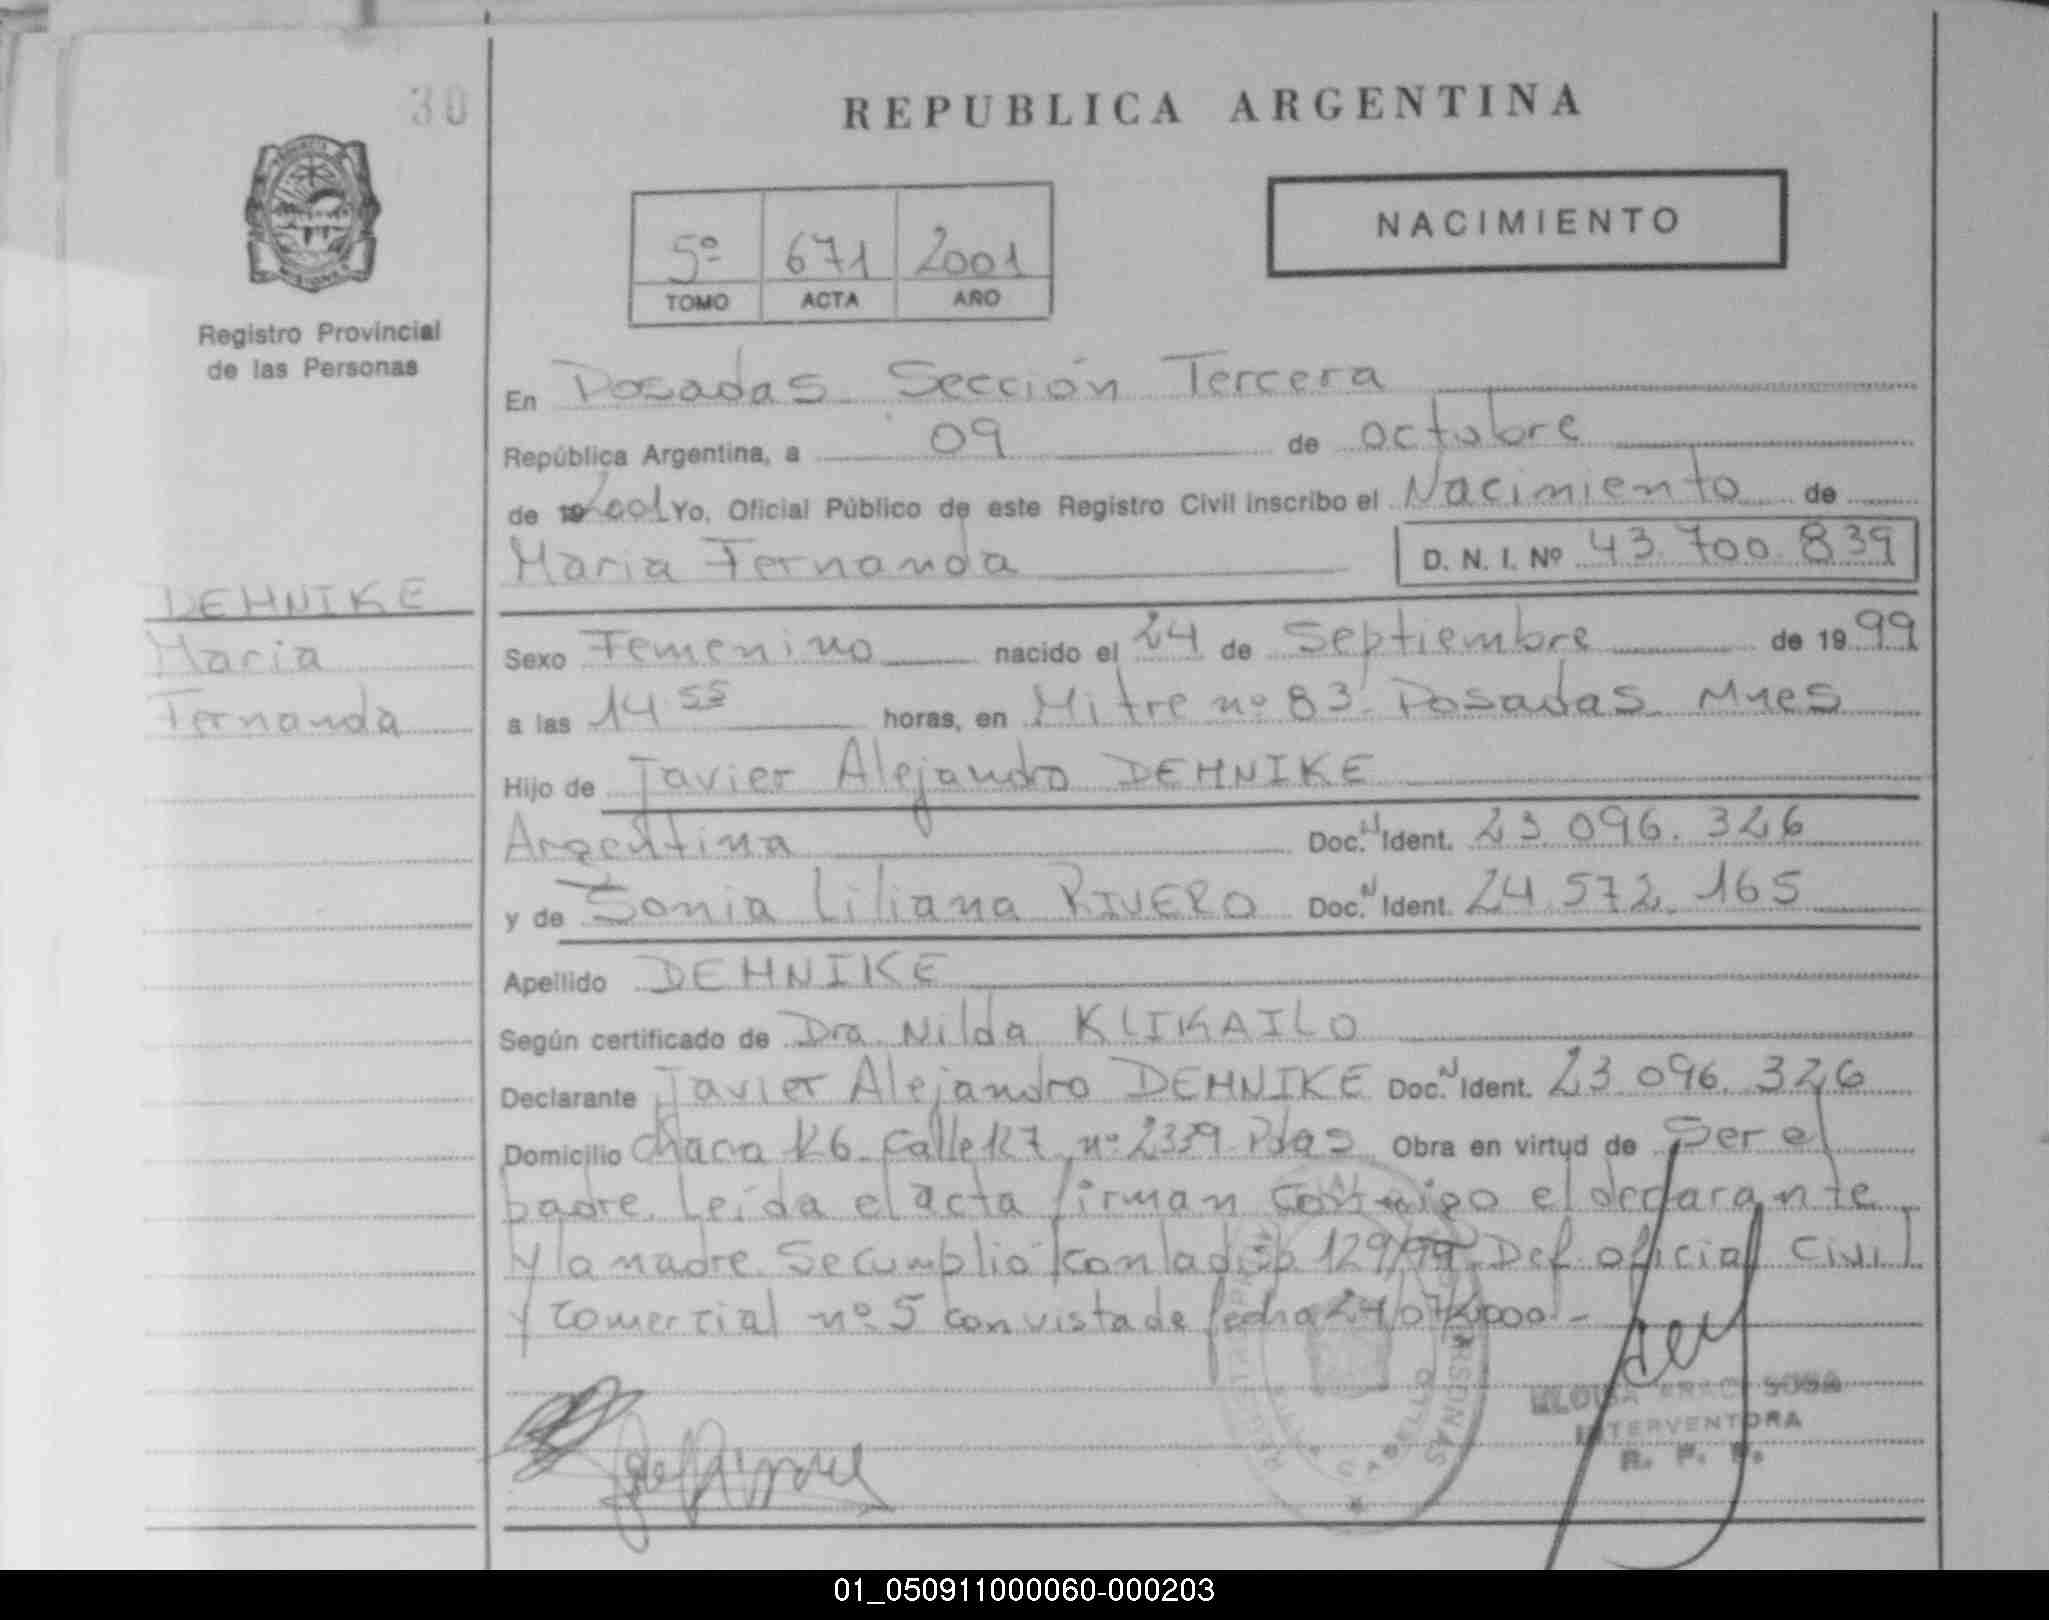 30
REPUBLICA ARGENTINA
NACIMIENTO
5º 671 2001
TOMO ACTA AÑO
Registro Provincial
de las Personas
En Posadas Sección Tercera
República Argentina, a 09 de octubre
de 2001 Yo, Oficial Público de este Registro Civil inscribo el Nacimiento de
Maria Fernanda D. N. I. Nº 43.700.839
DEHNIKE
Maria
Fernanda
Sexo Femenino nacido el 24 de Septiembre de 1999
a las 14 55 horas, en Mitre nº 83. Posadas Mnes
Hijo de Javier Alejandro DEHNIKE
Argentina Doc. N Ident. 23.096.326
y de Sonia Liliana RIVERO Doc. N Ident. 24.572.165
Apellido DEHNIKE
Según certificado de Dra. Nilda KLIKAILO
Declarante Javier Alejandro DEHNIKE Doc. N Ident. 23.096.326
Domicilio chacra 126 calle 127 nº 2339 Pdas Obra en virtud de Ser el
padre. Leída el acta firman conmigo el declarante
y la madre. Se cumplió con la disp. 129/99. Def. oficial Civil
y comercial nº 5 con vista de fecha 24/07/2000.-
SOSA
INTERVENTORA
R. P. P.
CABELLO
01_050911000060-000203